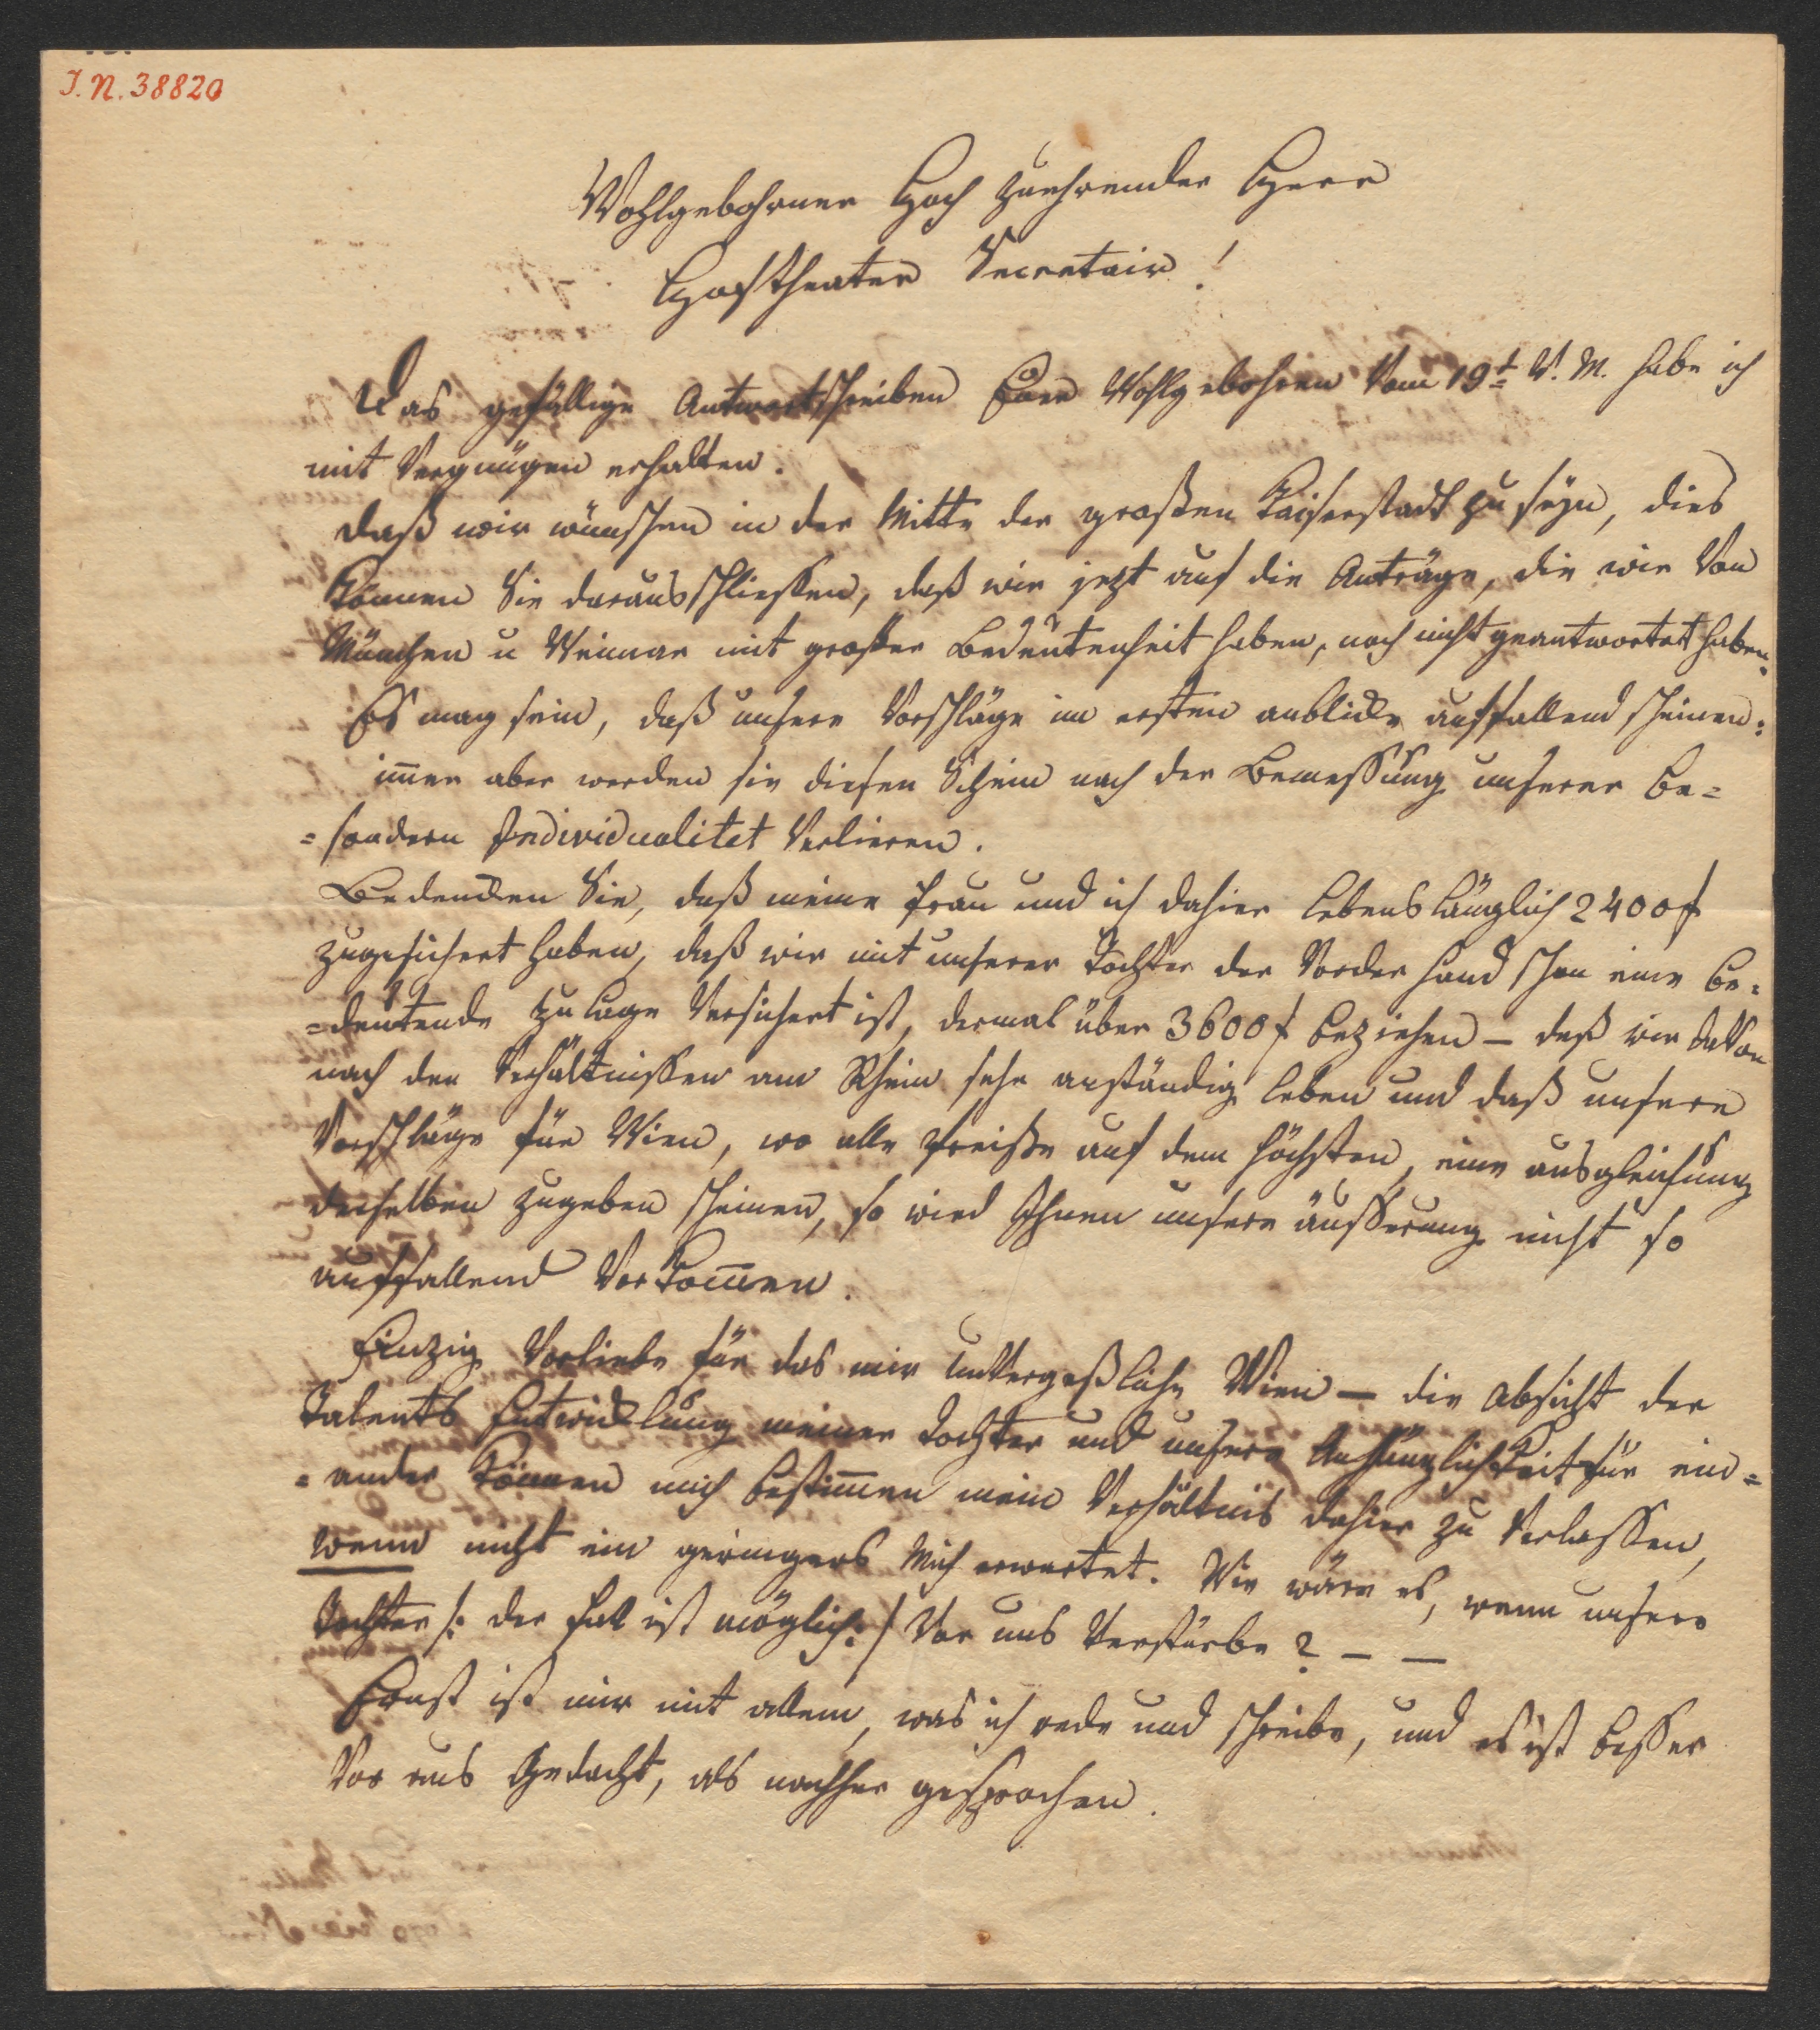 J. N. 38820
Wohlgebohrner Hoch zuehrender Herr
Hoftheater Secretair!
Das gefällige Antwortschreiben Euer Wohlgebohren vom 19t v. M. habe ich
mit Vergnügen erhalten.
Daß wir wünschen in der Mitte der großen Kaiserstadt zu seyn, dies
können Sie daraus schliessen, daß wir jezt auf die Anträge, die wir von
München u Weimar mit großer Bedeutenheit haben, noch nicht geantwortet haben.
Es mag sein, daß unsere Vorschläge im ersten anblicke auffallend scheinen:
im̅er aber werden sie diesen Schein nach der Bemessung unserer be=
=sondern Individualitet verlieren.
Bedencken Sie, daß meine Frau und ich dahier lebenslänglich 2400 f
zugesichert haben, daß wir mit unserer Tochter der Vorder hand schon eine be=
=deutende Zulage versichert ist, dermal über 3600 f beziehen – daß wir davon
nach den Verhältnissen am Rhein sehr anständig leben und daß unsere
Vorschläge für Wien, wo alle Preiße auf dem höchsten, eine ausgleichung
derselben zugeben scheinen, so wird Ihnen unsere äusserung nicht so
auffallend vorkom̅en.
Einzig Vorliebe für das mir unvergeßliche Wien – die Absicht der
Talents Entwicklung meiner Tochter und unsere Anhänglichkeit für ein=
=ander können mich bestim̅en mein Verhältnis dahier zu verlassen,
wenn nicht ein geringers mich erwartet. Wie wäre es, wenn unsere
Tochter /: der Fall ist möglich :/ vor uns verstürbe? – –
Ernst ist mir mit allem, was ich rede und schreibe, und es ist besser
vor aus Gedacht, als nachher gesprochen.